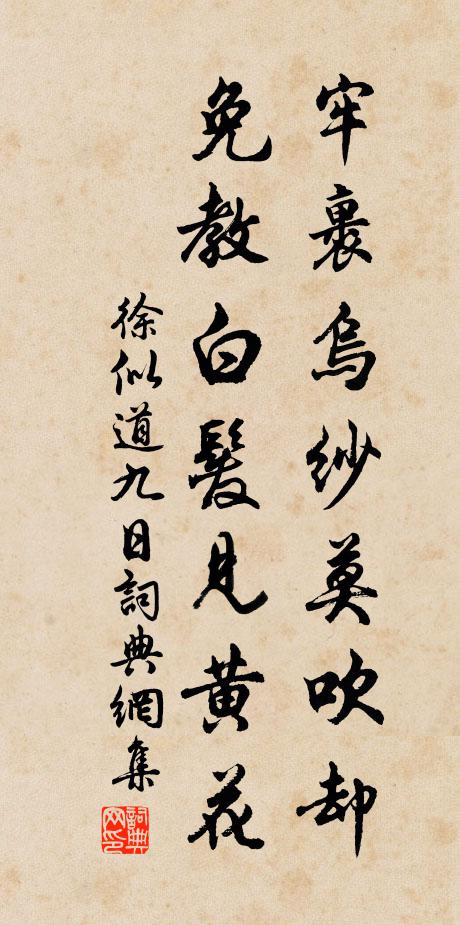 牢裹烏紗莫吹却
免教白髮見黃花
徐似道九日詞典網集
詞典網印